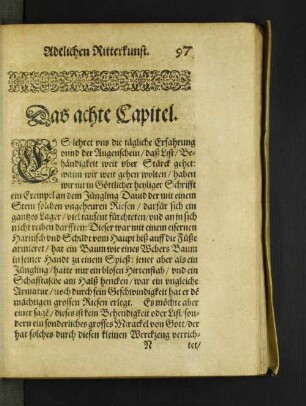 Adelichen Ritterkunst. 97
Das achte Capitel.
ES lehret vns die tägliche Erfahrung
vnnd der Augenschein / daß List / Be-
händigkeit weit vber Stärck gehet:
wann wir weit gehen wolten / haben
wir nit in Göttlicher heyliger Schrifft
ein Exempel an dem Jüngling Dauid der mit einem
Stein solchen vngeheuren Riesen / darfür sich ein
gantzes Läger / viel tausent fürchteten / vnd an jn sich
nicht reiben dorfften: Dieser war mit einem eisernen
Harnisch vnd Schildt vom Haupt biß auff die Füsse
armieret / hat ein Baum wie eines Webers Baum
in seiner Handt zu einem Spieß: jener aber als ein
Jüngling / hatte nur ein blosen Hirtenstab / vnd ein
Schafftasche am Halß hencken / war ein vngleiche
Armatur / noch durch sein Geschwindigkeit hat er dē
mächtigen grossen Riesen erlegt. Es möchte aber
einer sagē / dieses ist kein Behendigkeit oder List / son-
dern ein sonderliches grosses Mirackel von Gott / der
hat solches durch diesen kleinen Werckzeug verrich-
N tet /